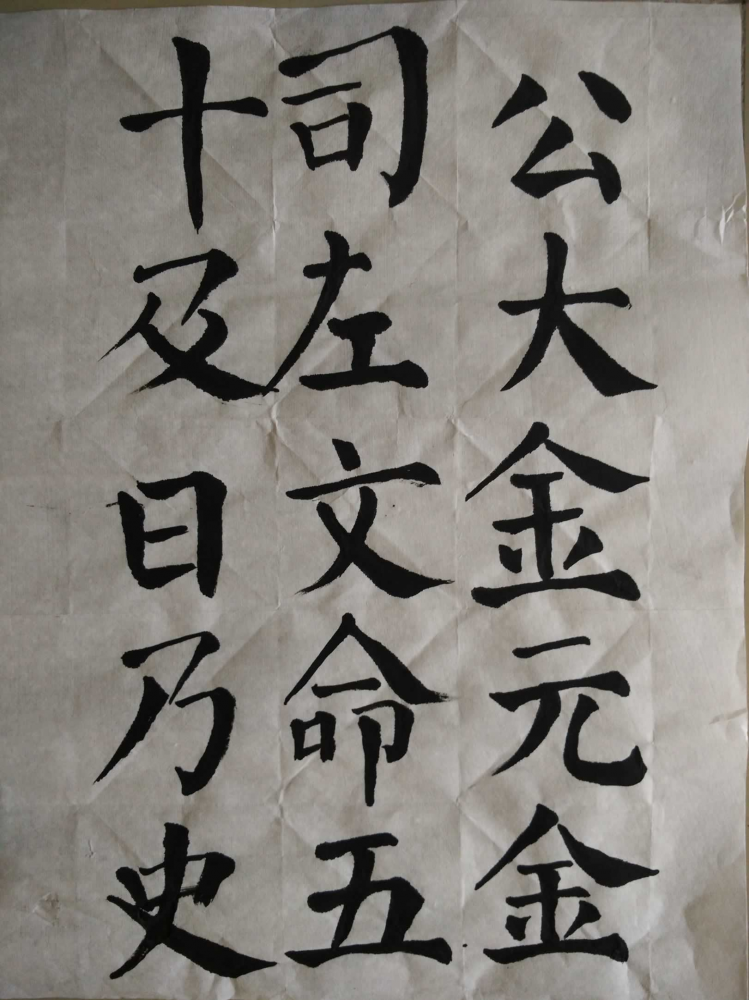 公大金元金
司左文命五
十及日乃史